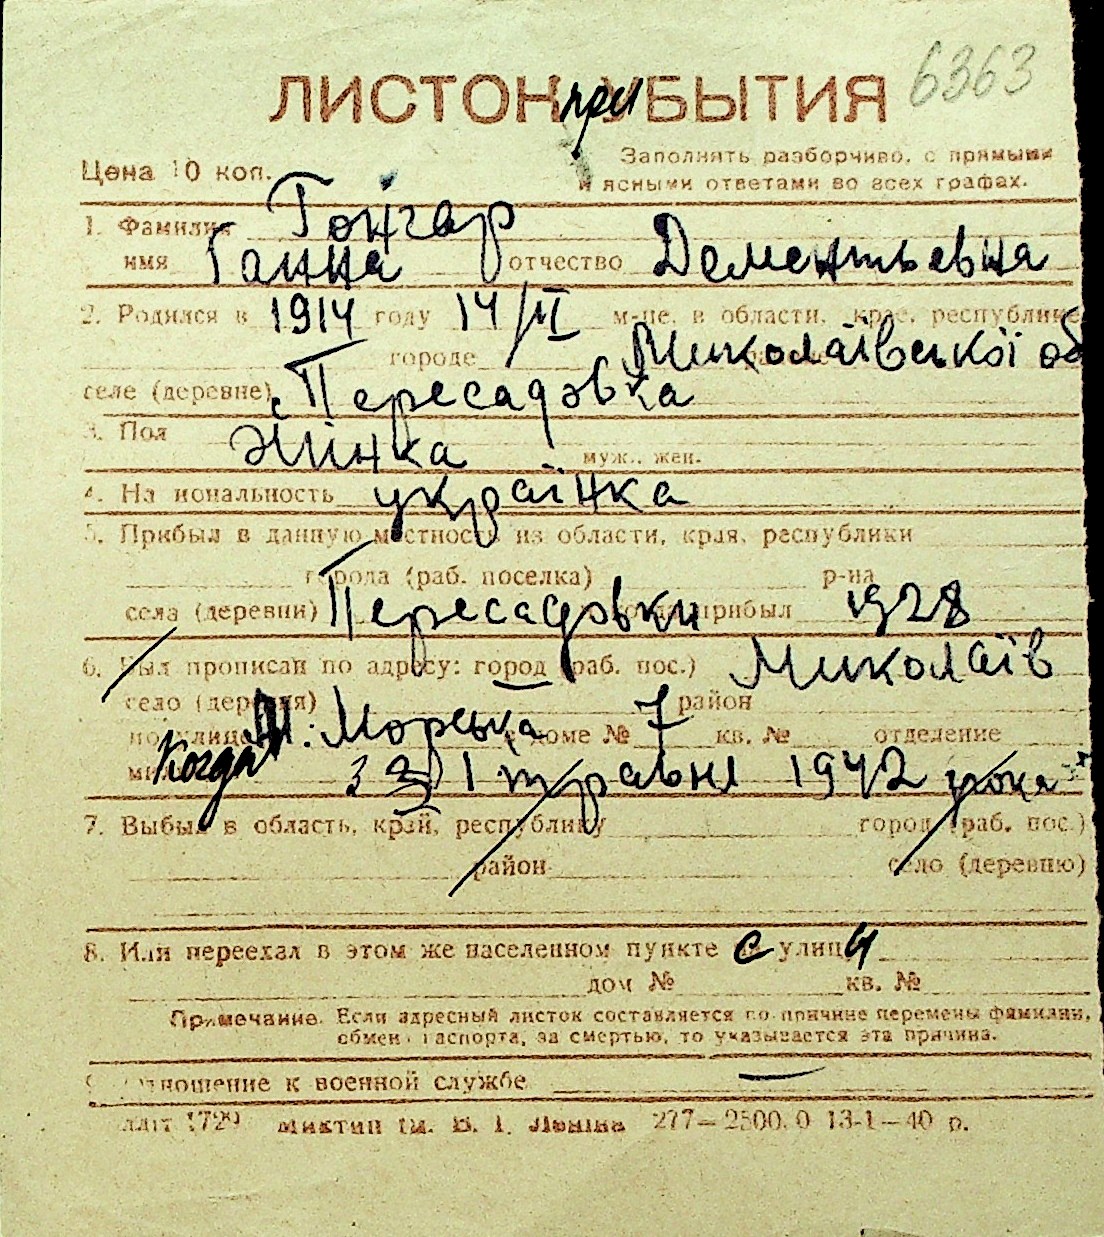 6363
ЛИСТОК при УБЫТИЯ
Цена 10 коп.
Заполнять разборчиво, с прямыми
и ясными ответами во всех графах.
1. Фамилия Гончар
имя Ганна отчество Дементьевна
2. Родился в 1914 году 14/II м-це, в области, крае, республике
городе Миколаївської об
селе (деревне) с. Пересадовка
3. Пол Жінка муж., жен.
4. Национальность українка
5. Прибыл в данную местность из области, края, республики
города (раб. поселка) р-на
села (деревни) Пересадовки когда прибыл 1928
6. Был прописан по адресу: город (раб. пос.) Миколаїв
село (деревня) район
по улице Морська 7 в доме № кв. № отделение
Когда З 1 травня 1942 року
7. Выбыл в область, край, республику город (раб. пос.)
район село (деревню)
8. Или переехал в этом же населенном пункте с улицы
дом № кв. №
Примечание. Если адресный листок составляется по причине перемены фамилии,
обмена паспорта, за смертью, то указывается эта причина.
9. Отношение к военной службе —
277—2500.0 13-1—40 р.